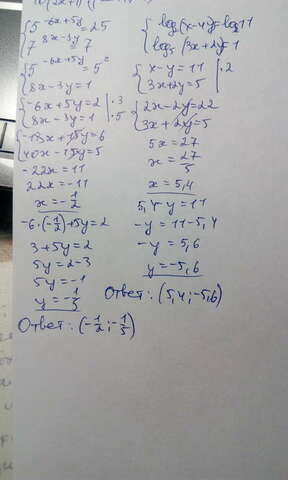 5^{-6x+5y} = 25
7^{8x-3y} = 7
5^{-6x+5y} = 5^2
8x-3y=1
-6x+5y=2 | ·3
8x-3y=1 | ·5
-18x+15y=6
40x-15y=5
-22x=11
22x=-11
x=-1/2
-6·(-1/2)+5y=2
3+5y=2
5y=2-3
5y=-1
y=-1/5
Ответ: (-1/2; -1/5)
log(x-y)=log11
log₅(3x+2y)=1
x-y=11 | ·2
3x+2y=5
2x-2y=22
3x+2y=5
5x=27
x=27/5
x=5,4
5,4-y=11
-y=11-5,4
-y=5,6
y=-5,6
Ответ: (5,4;-5,6)